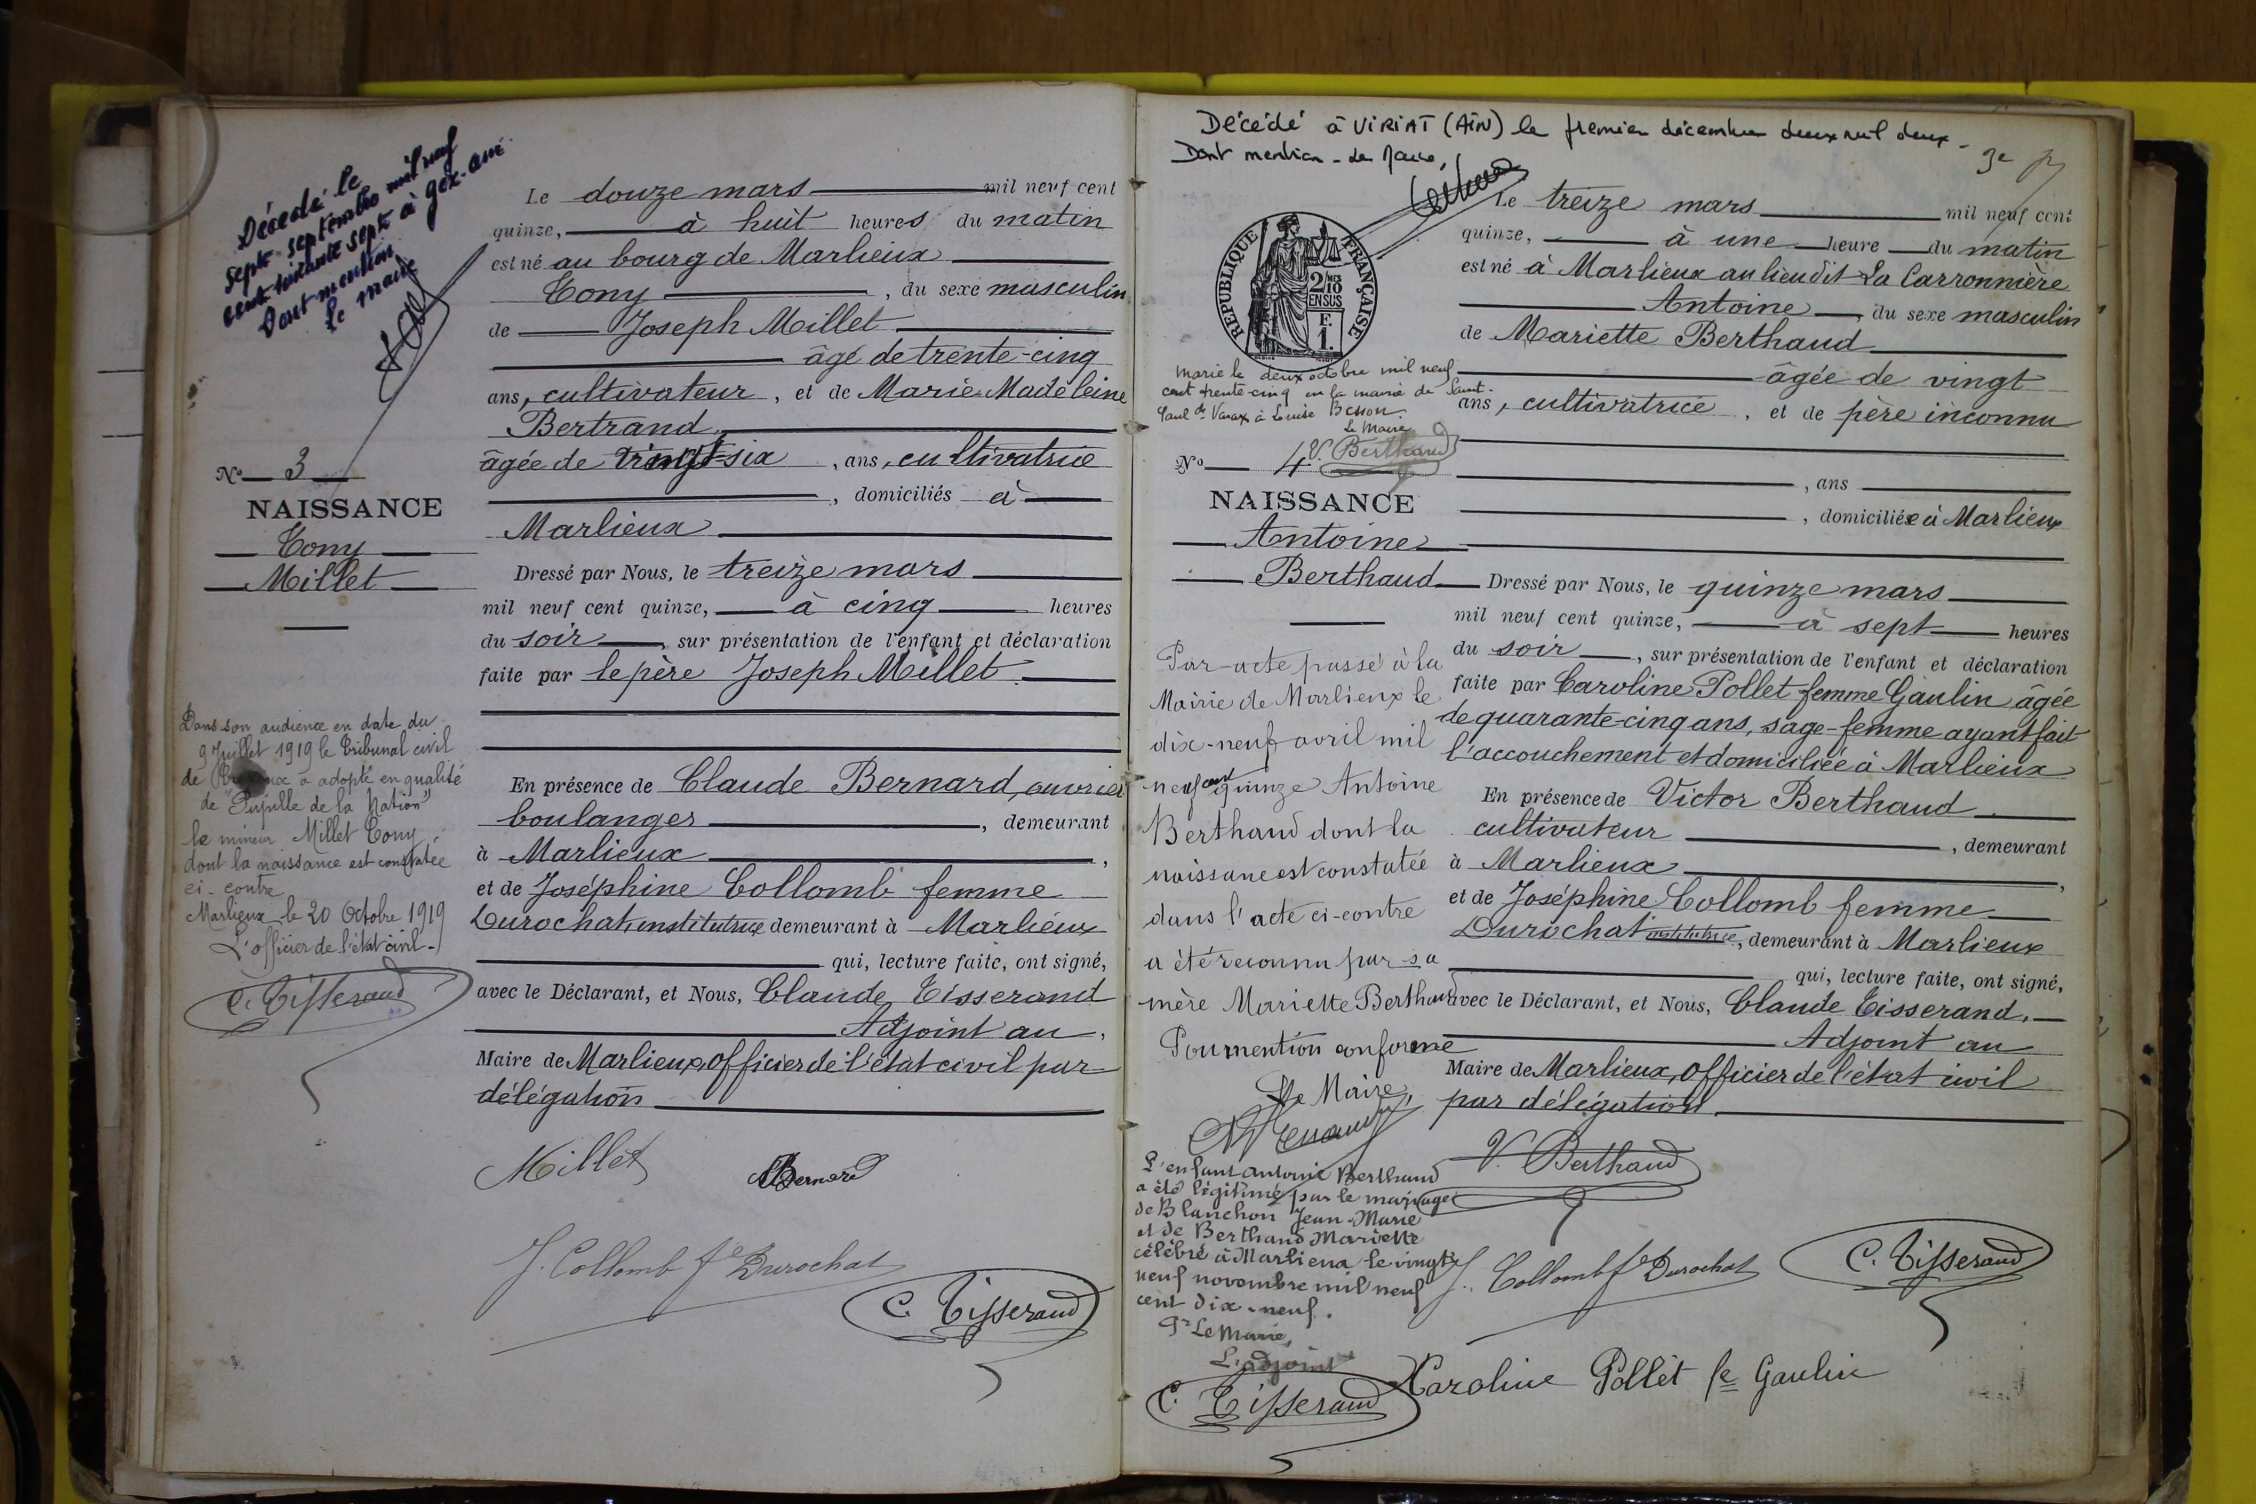 Décédé le
sept septembre mil neuf
cent soixante sept à Gex-Ain
Dont mention
Le maire
Le douze mars mil neuf cent
quinze, à huit heures du matin
est né au bourg de Marlieux
Tony, du sexe masculin
de Joseph Millet
âgé de trente-cinq
ans, cultivateur, et de Marie Madeleine
Bertrand
âgée de six, ans, cultivatrice
, domiciliés à
Marlieux
Nº 3
NAISSANCE
Tony
Millet
Dressé par Nous, le treize mars
mil neuf cent quinze, à cinq heures
du soir, sur présentation de l'enfant et déclaration
faite par le père Joseph Millet
Dans son audience en date du
9 Juillet 1919 le Tribunal civil
de a adopté en qualité
de "Pupille de la Nation"
le mineur Millet Tony
dont la naissance est constatée
ci-contre
Marlieux le 20 Octobre 1919
L'officier de l'état civil
C. Tisserand
En présence de Claude Bernard, ouvrier
boulanger, demeurant
à Marlieux,
et de Joséphine Collomb femme
Durochat, institutrice demeurant à Marlieux
qui, lecture faite, ont signé,
avec le Déclarant, et Nous, Claude Tisserand
Adjoint au,
Maire de Marlieux, officier de l'état civil par
délégation
Millet Bernard
J. Collomb fe Durochat
C. Tisserand
Décédé à VIRIAT (AIN) le premier décembre deux mil deux.
Dont mention - Le Maire,
3e
RÉPUBLIQUE FRANÇAISE
2/10
EN SUS
E.
1.
Le treize mars mil neuf cent
quinze, à une heure du matin
est né à Marlieux au lieu dit La Carronnière
Antoine, du sexe masculin
de Mariette Berthaud
âgée de vingt
ans, cultivatrice, et de père inconnu
, ans
, domiciliée à Marlieux
Marié le deux octobre mil neuf
cent trente-cinq en la mairie de Saint-
Paul de Varax à Louise Besson.
Le Maire
V. Berthaud
Nº 4
NAISSANCE
Antoine
Berthaud
Dressé par Nous, le quinze mars
mil neuf cent quinze, à sept heures
du soir, sur présentation de l'enfant et déclaration
faite par Caroline Pollet femme Gaulin âgée
de quarante-cinq ans, sage-femme ayant fait
l'accouchement et domiciliée à Marlieux
En présence de Victor Berthaud
cultivateur, demeurant
à Marlieux,
et de Joséphine Collomb femme
Durochat institutrice, demeurant à Marlieux
qui, lecture faite, ont signé,
avec le Déclarant, et Nous, Claude Tisserand,
Adjoint au
Maire de Marlieux, officier de l'état civil
par délégation
Par acte passé à la
Mairie de Marlieux le
dix-neuf avril mil
neuf cent quinze Antoine
Berthaud dont la
naissance est constatée
dans l'acte ci-contre
a été reconnu par sa
mère Mariette Berthaud
Pour mention conforme
Le Maire,
L'enfant Antoine Berthaud
a été légitimé par le mariage
de Blanchon Jean-Marie
et de Berthaud Mariette
célébré à Marlieux le vingt
neuf novembre mil neuf
cent dix-neuf.
Pr Le Maire,
L'adjoint
C. Tisserand
V. Berthaud
J. Collomb fe Durochat
C. Tisserand
Caroline Pollet fe Gaulin